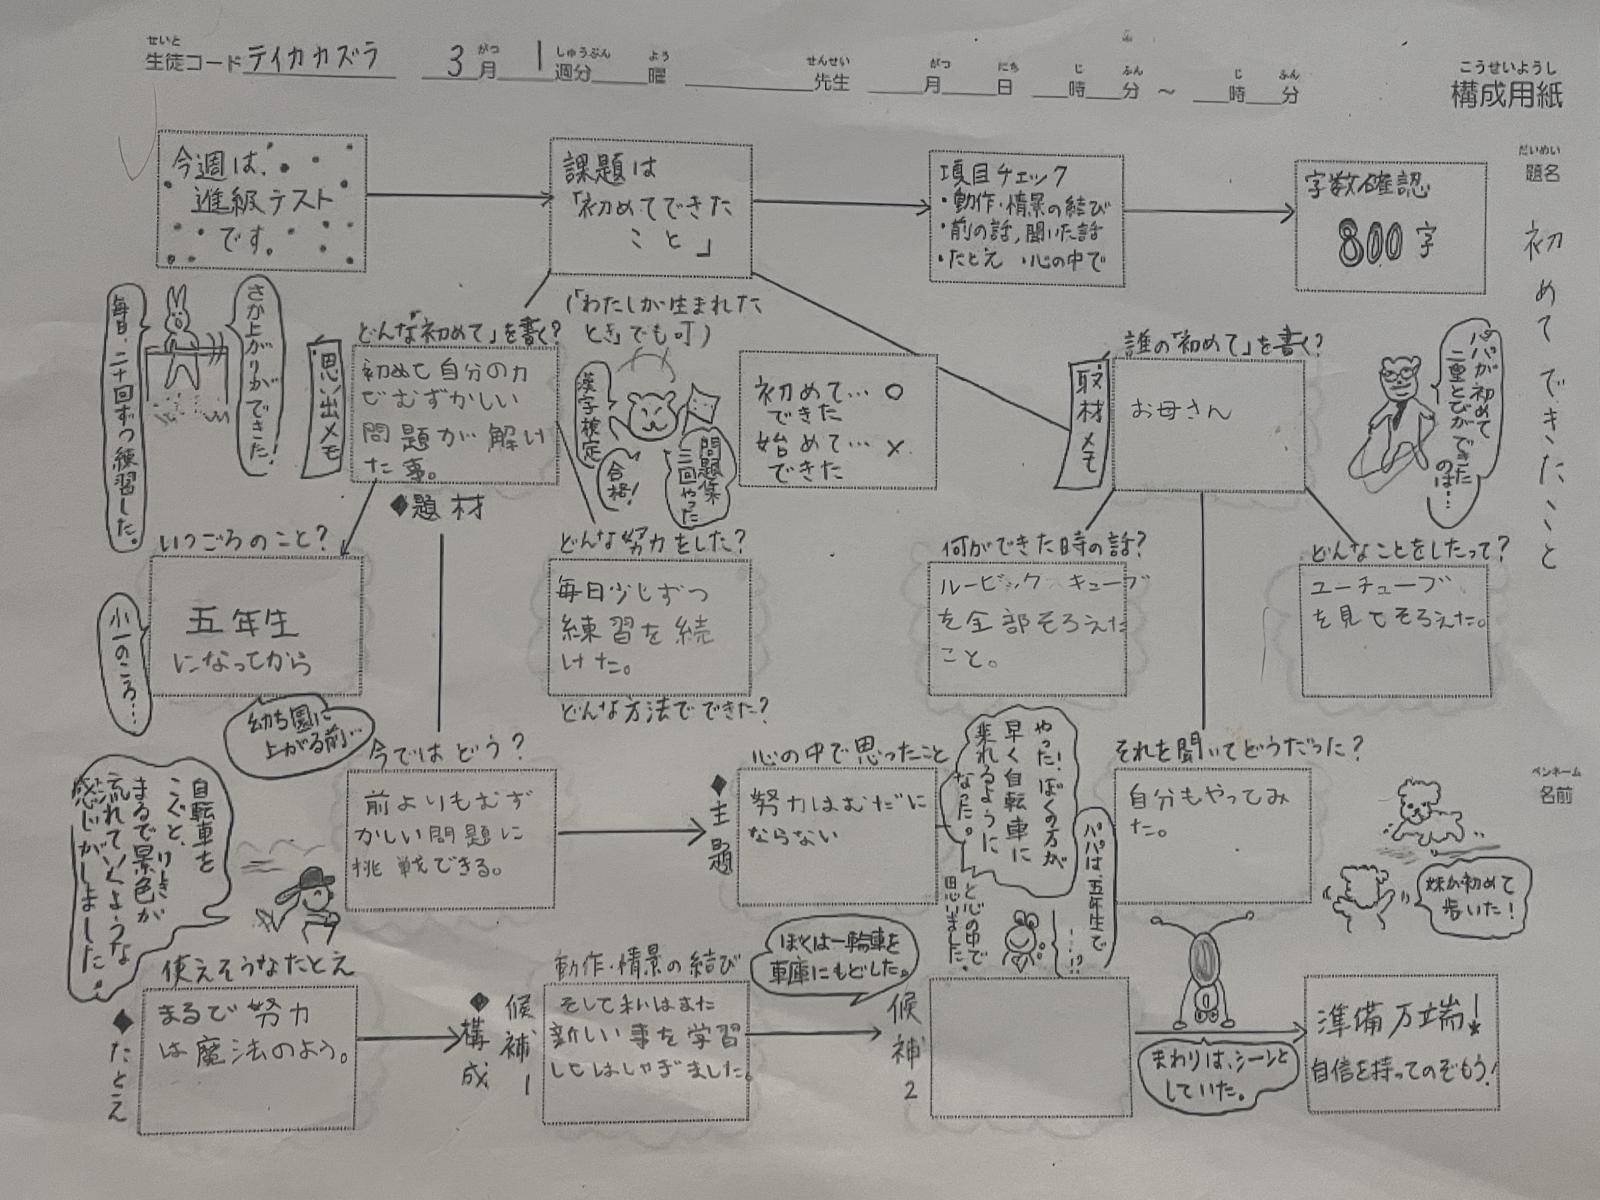 せいと
生徒コード テイカカズラ
3月 1週分 曜
がつ しゅうぶん よう
せんせい
先生
がつ にち じ ふん じ ふん
月 日 時 分 ～ 時 分
こうせいようし
構成用紙
だいめい
題名
初めてできたこと
ペンネーム
名前
今週は、
進級テスト
です。
課題は
「初めてできた
こと」
項目チェック
・動作・情景の結び
・前の話,聞いた話
・たとえ ・心の中で
字数確認
800字
(「わたしが生まれた
とき」でも可)
さか上がりができた!
毎日、二十回ずつ練習した。
思い出メモ
どんな「初めて」を書く?
初めて自分の力
でむずかしい
問題が解け
た事。
◆題材
漢字検定
合格!
問題集
三回やった
初めて… ○
できた
始めて… ×
できた
取材メモ
誰の「初めて」を書く?
お母さん
パパが初めて
二重とびができた
のは…
いつごろのこと?
五年生
になってから
小一のころ…
幼ち園に
上がる前…
どんな努力をした?
毎日少しずつ
練習を続
けた。
どんな方法でできた?
何ができた時の話?
ルービックキューブ
を全部そろえた
こと。
どんなことをしたって?
ユーチューブ
を見てそろえた。
今ではどう?
前よりもむず
かしい問題に
挑戦できる。
◆主題
心の中で思ったこと
努力はむだに
ならない
やった!ぼくの方が
早く自転車に
乗れるように
なった。
と心の中で
思いました。
パパは、五年生で
…!?
それを聞いてどうだった?
自分もやってみ
た。
妹が初めて
歩いた!
自転車を
こぐと、けしきが
まるで景色が
流れていくような
感じがしました。
◆たとえ
使えそうなたとえ
まるで努力
は魔法のよう。
◆構成
候補1
動作・情景の結び
そして私はまた
新しい事を学習
してはしゃぎました。
ぼくは一輪車を
車庫にもどした。
候補2
まわりは、シーンと
していた。
準備万端!
自信を持ってのぞもう!